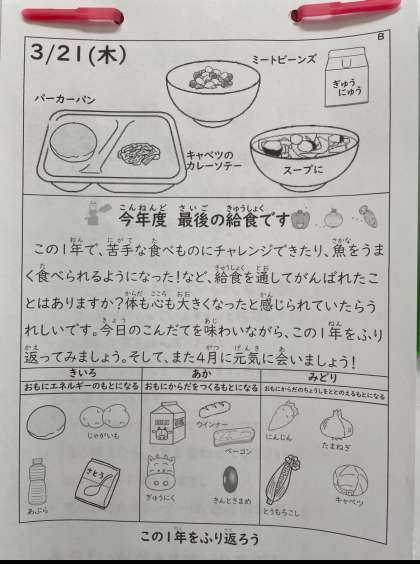 B
3/21(木)
ミートビーンズ
ぎゅうにゅう
パーカーパン
キャベツの
カレーソテー
スープに
今年度 最後の給食です
この1年で、苦手な食べものにチャレンジできたり、魚をうま
く食べられるようになった!など、給食を通してがんばれたこ
とはありますか?体も心も大きくなったと感じられていたらう
れしいです。今日のこんだてを味わいながら、この1年をふり
返ってみましょう。そして、また4月に元気に会いましょう!
きいろ あか みどり
おもにエネルギーのもとになる おもにからだをつくるもとになる おもにからだのちょうしをととのえるもとになる
じゃがいも
ウインナー
ベーコン
にんじん
たまねぎ
さとう
あぶら
ぎゅうにく
きんときまめ
とうもろこし
キャベツ
この1年をふり返ろう